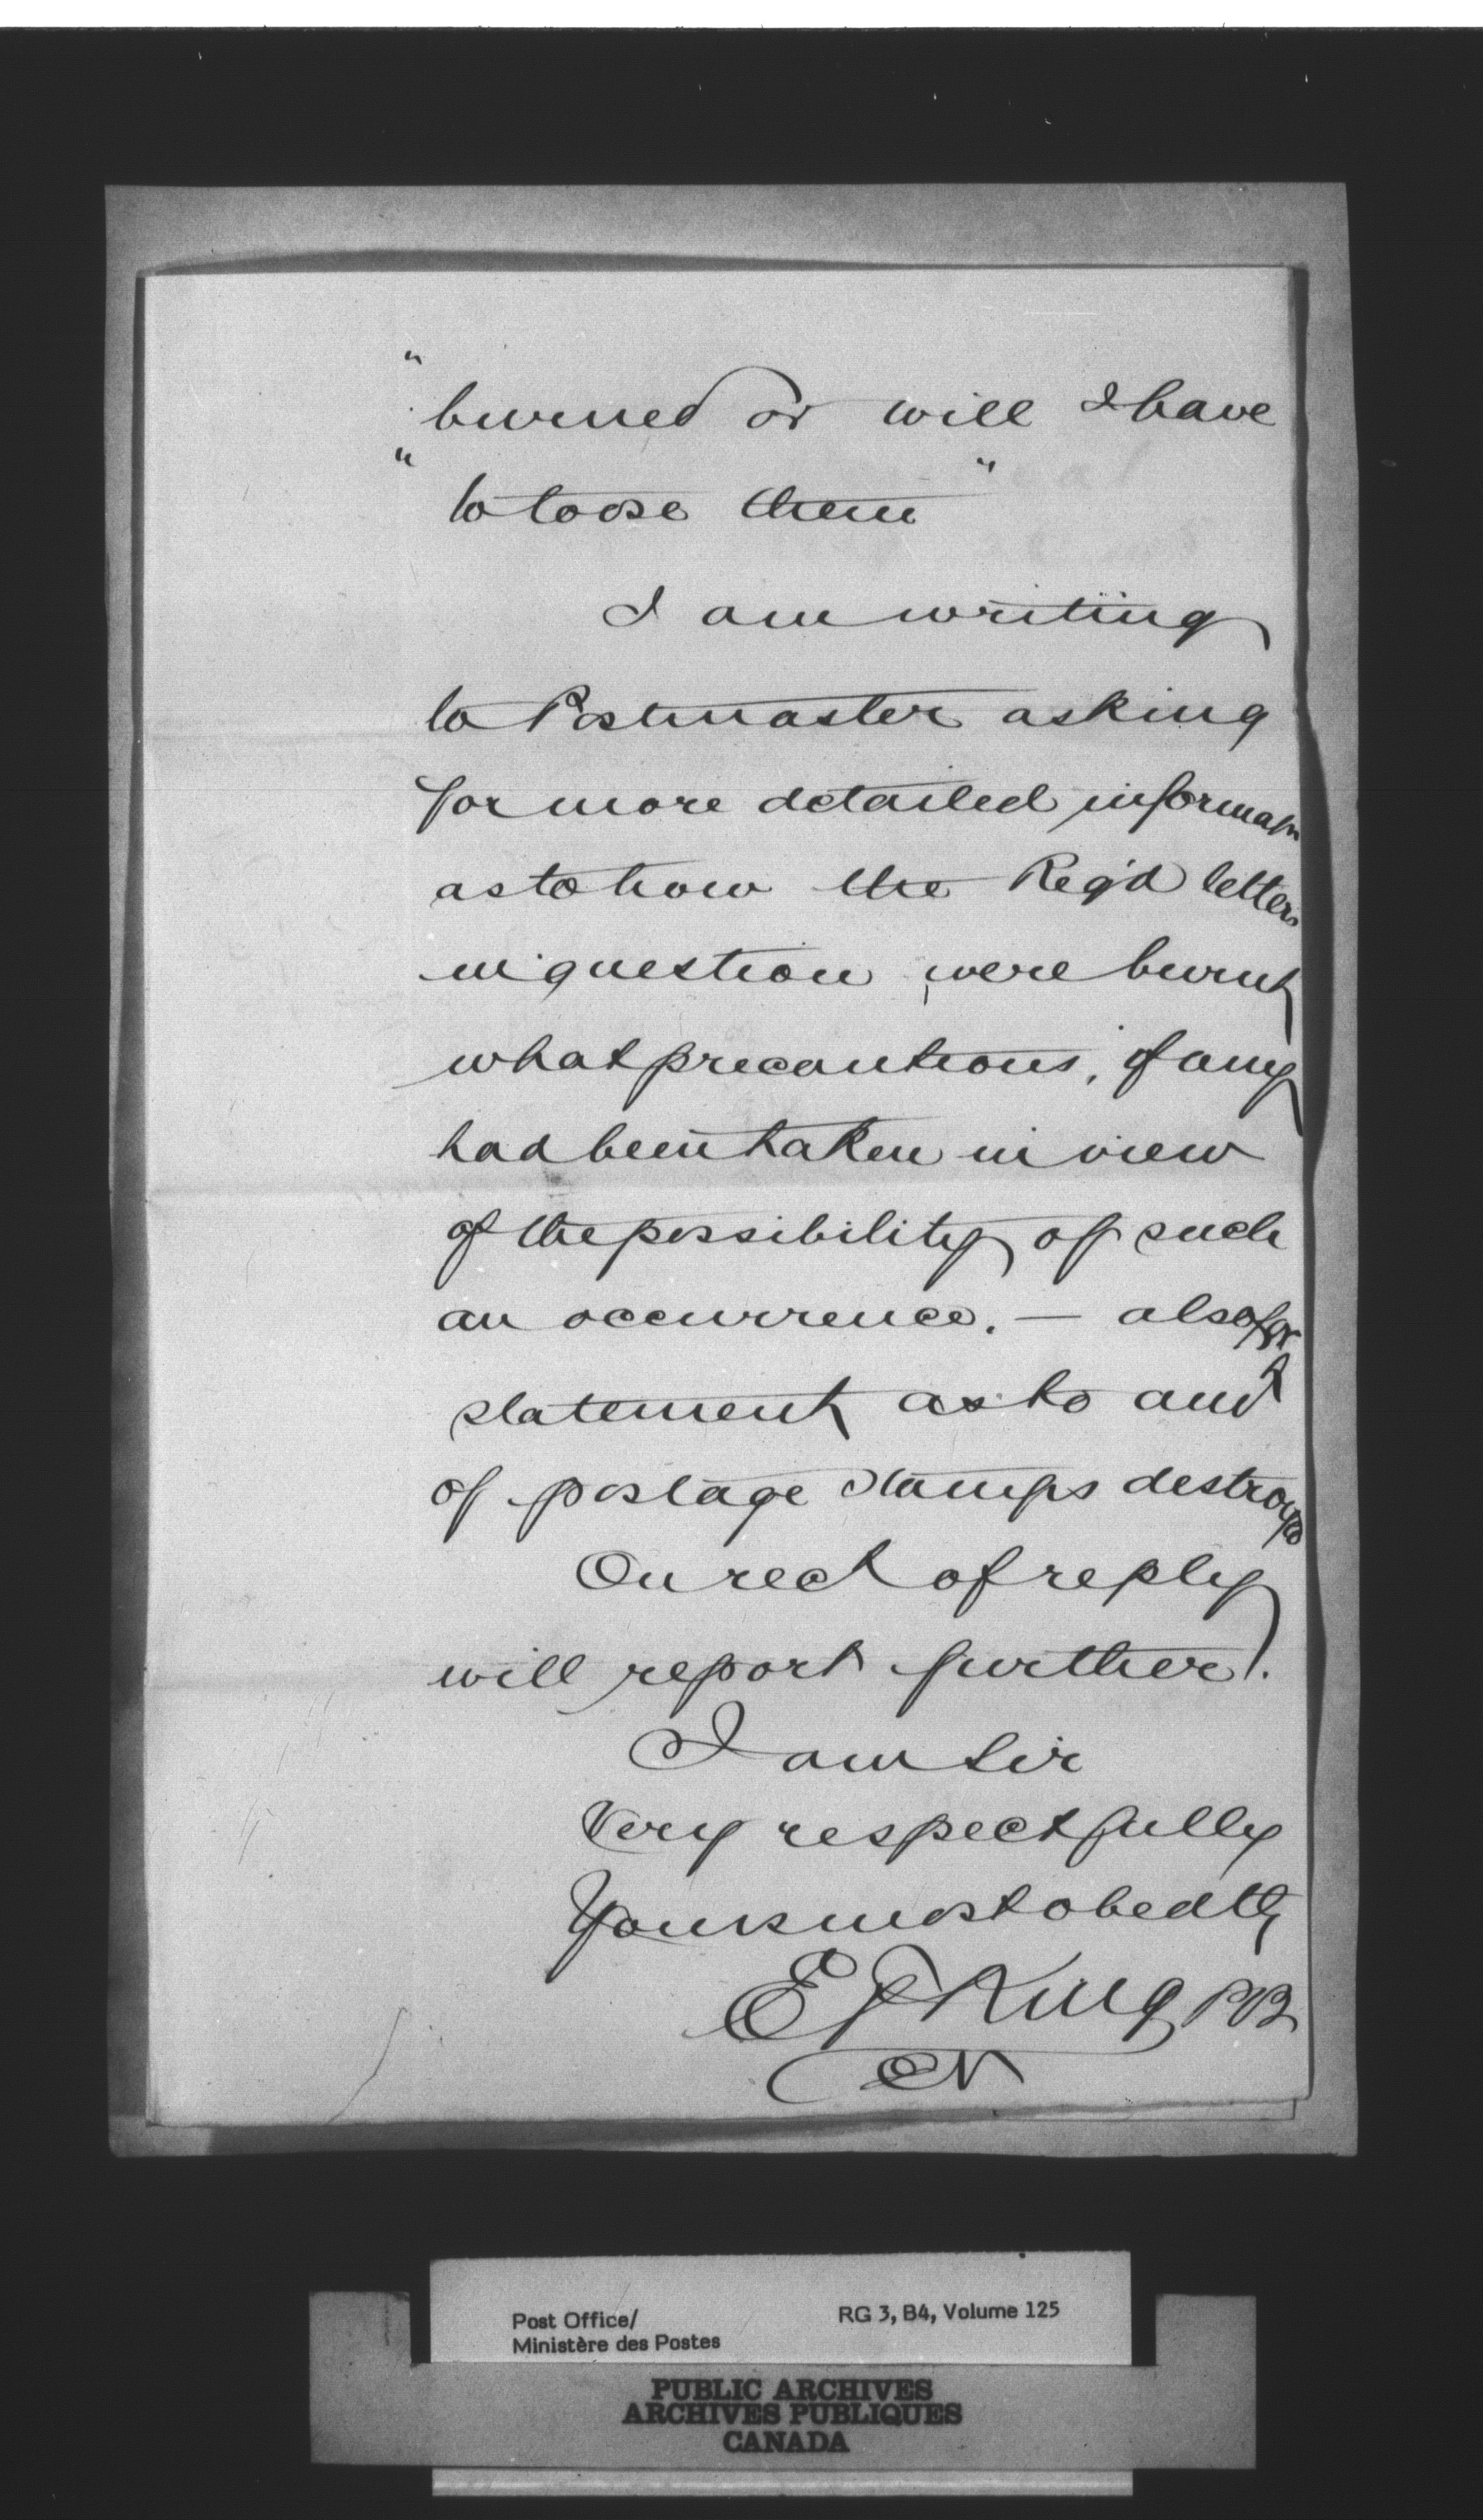 "burned or will I have
"to loose them"
I am writing
to Postmaster asking
for more detailed informatn
as to how the Reg'd letters
in question were burnt
what precautions, if any
had been taken in view
of the possibility of such
an occurrence. — also for
statement as to amt
of postage stamps destroyed
On rect of reply
will report further.
I am Sir
Very respectfully
Yours most obedtly
E King
Post Office/
Ministère des Postes
RG 3, B4, Volume 125
PUBLIC ARCHIVES
ARCHIVES PUBLIQUES
CANADA